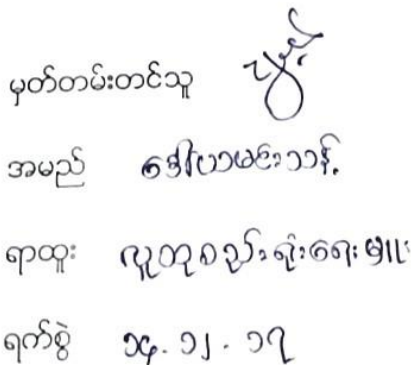 မှတ်တမ်းတင်သူ
အမည် ဒေါ်ယာမင်းသန့်
ရာထူး လူထုစည်းရုံးရေးမှူး
ရက်စွဲ ၁၄.၁၂.၁၇